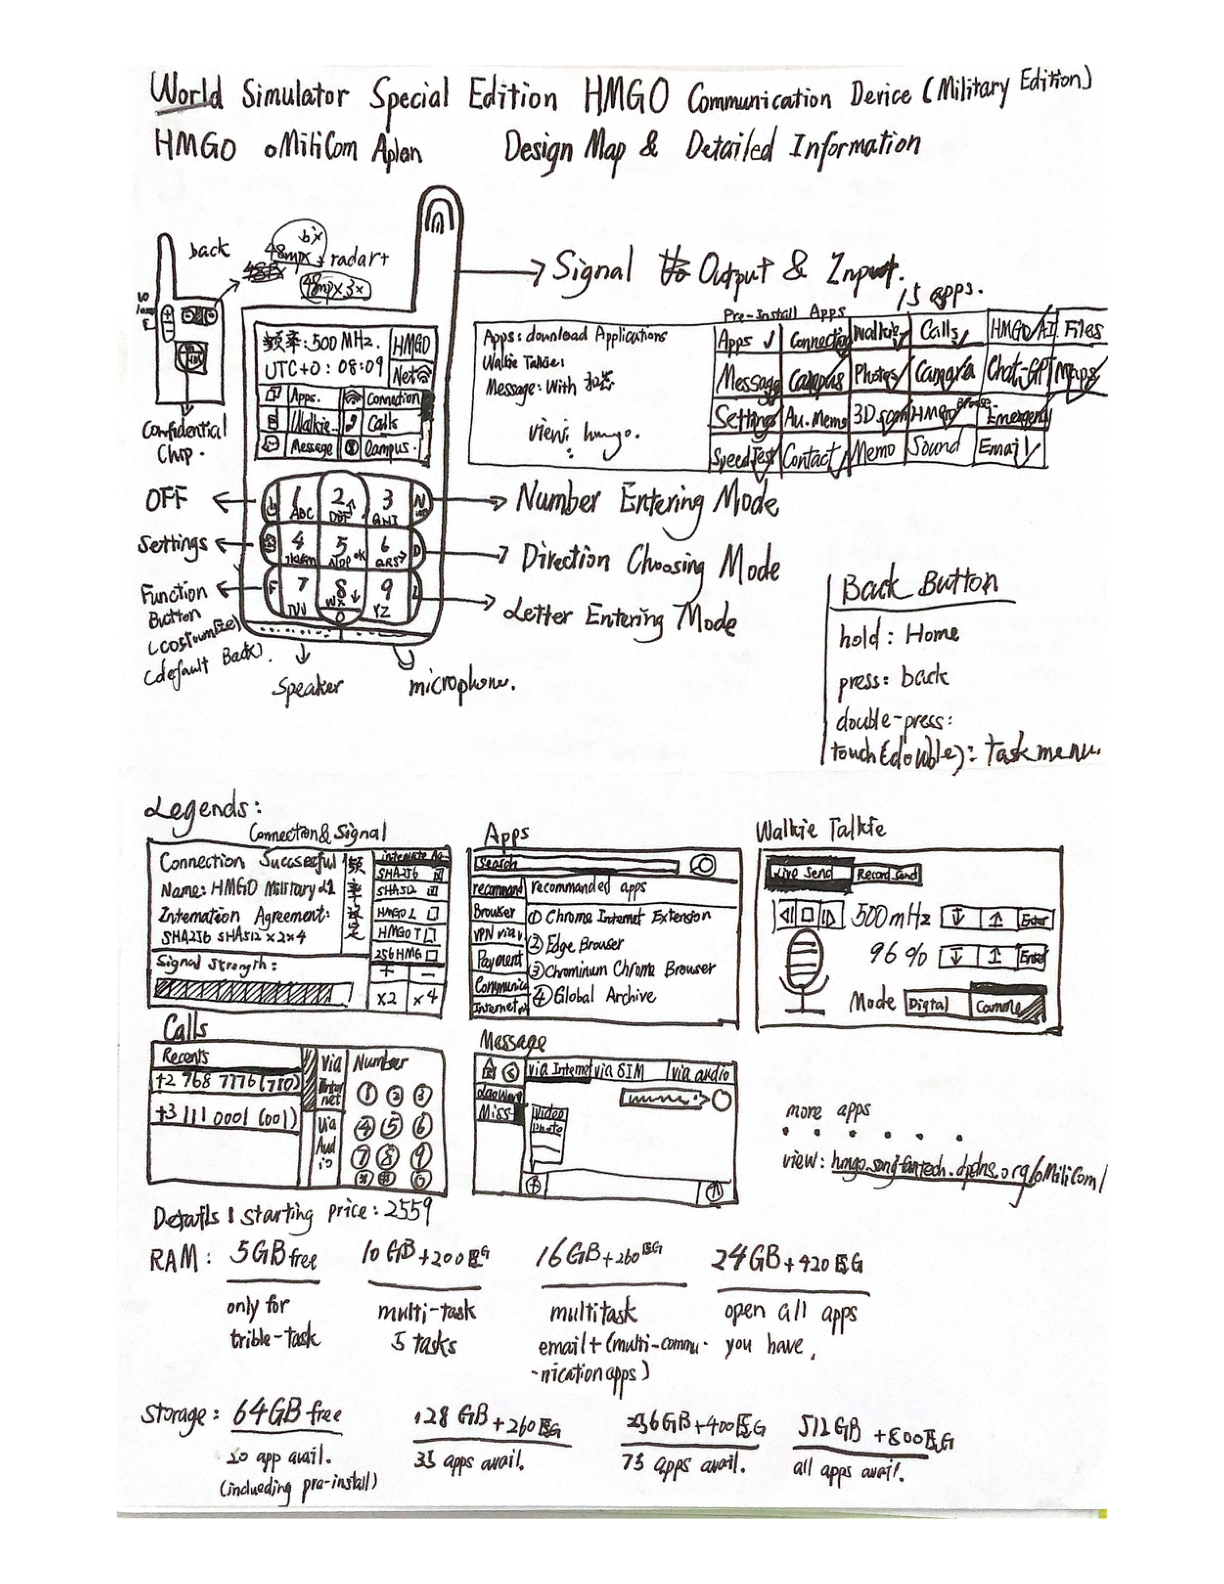 World Simulator Special Edition HMGO Communication Device (Military Edition)
HMGO oMiliCom Aplan Design Map & Detailed Information
back
48mpx
6x
radar+
48mpx 3x
Signal Output & Input.
频率:500 MHz. HMGO
UTC+0: 08:09 Net
Apps. Connection
Walkie.. Calls
Message Campus.
Confidential
Chip.
Apps: download Applications
Walkie Talkie:
Message: With
view: hmgo.
15 apps.
Pre-Install Apps
Apps Connection Walkie Calls HMGO AI Files
Message Campus Photos Camara Chat-GPT Maps
Settings Au. Memo HMGO Browse. Emergency
Speed Test Contact Memo Sound Email
OFF
Settings
Function
Button
(costoumize)
(default Back).
1 2 3
ABC DEF
4 5 OK 6
7 8 9
WX YZ
0
Number Entering Mode
Direction Choosing Mode
Letter Entering Mode
Speaker
microphone.
Back Button
hold: Home
press: back
double-press:
touch (double): task menu.
Legends:
Connection & Signal
Connection Succsesful
Name: HMGO Military d1
Internation Agreement:
SHA256 SHA512 ×2×4
Signal Strength:
频率设定
SHA256
SHA512
HMGO L
HMGO T
256 HMG
+ −
×2 ×4
Apps
Search
recommand recommanded apps
Browser ① Chrome Internet Extension
VPN via ② Edge Browser
Payment ③ Chrominum Chrome Browser
Communica ④ Global Archive
Internet
Walkie Talkie
Live Send Record Send
500mHz Enter
96% Enter
Mode Digital Comme
Calls
Recents
+2 768 7776 (780)
+3 111 0001 (001)
Via Internet
Via Audio
Number
1 2 3
4 5 6
7 8 9
Message
via Internet via SIM via audio
Miss-
video
photo
more apps
view: hmgo.songfantech.dpdns.org/oMiliCom/
Details: starting price: 2559
RAM: 5GB free 10GB+200 16GB+260 24GB+420
only for
trible-task
multi-task
5 tasks
multitask
email+(multi-commu-
-nication apps)
open all apps
you have.
Storage: 64GB free 128GB+260 256GB+400 512GB+800
20 app avail.
(inclueding pre-install)
35 apps avail.
75 apps avail.
all apps avail.